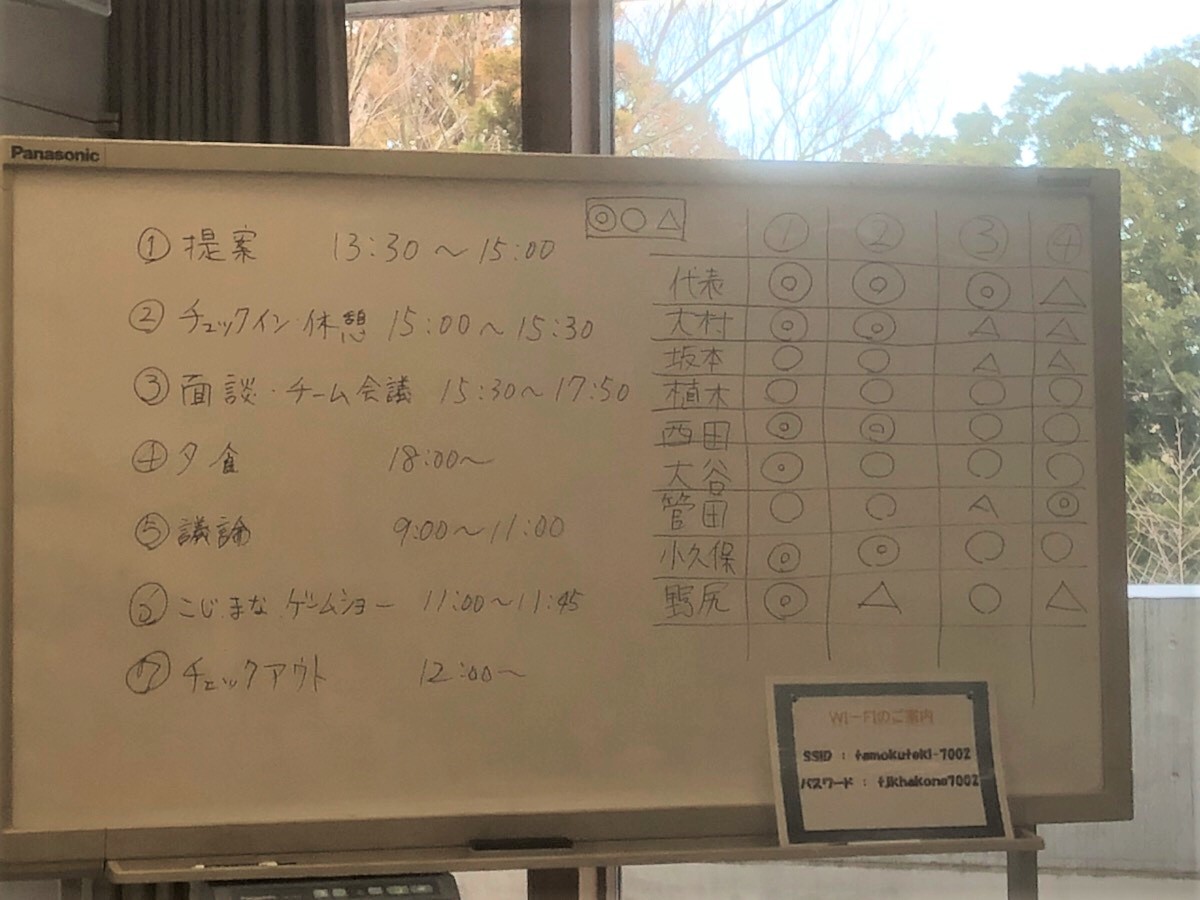 Panasonic
① 提案 13:30～15:00
② チェックイン・休憩 15:00～15:30
③ 面談・チーム会議 15:30～17:50
④ 夕食 18:00～
⑤ 議論 9:00～11:00
⑥ こじまな ゲームショー 11:00～11:45
⑦ チェックアウト 12:00～
◎○△
① ② ③ ④
代表 ◎ ◎ ◎ △
大村 ◎ ◎ △ △
坂本 ○ ○ △ △
植木 ○ ○ ○ ○
西田 ◎ ◎ ○ ○
大谷 ◎ ○ ○ ○
管田 ○ ○ △ ◎
小久保 ◎ ◎ ○ ○
野尻 ◎ △ ○ △
WI-FIのご案内
SSID : tamokuteki-7002
パスワード : tjkhakone7002